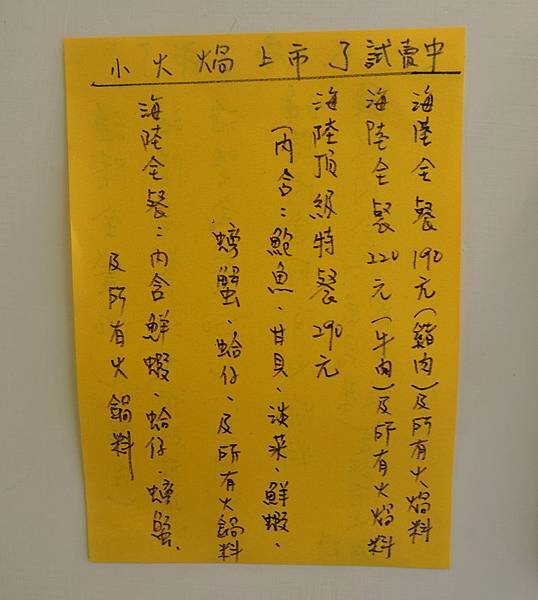 小火焗上市了試賣中
海陸全餐190元(豬肉)及所有火焗料
海陸全餐220元(牛肉)及所有火焗料
海陸頂級特餐290元
(內含:鮑魚、甘貝、淡菜、鮮蝦、
螃蟹、蛤仔、及所有火鍋料
海陸全餐:內含鮮蝦、蛤仔、螃蟹、
及所有火鍋料